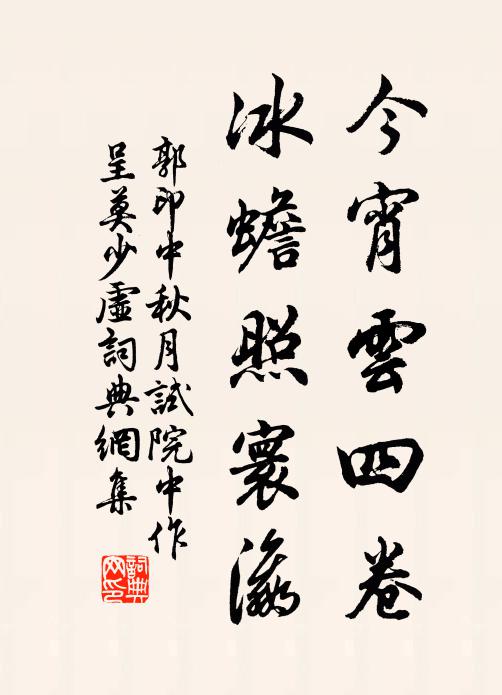 今宵雲四卷
冰蟾照寰瀛
郭印中秋月試院中作
呈莫少虛詞典網集
詞典网印